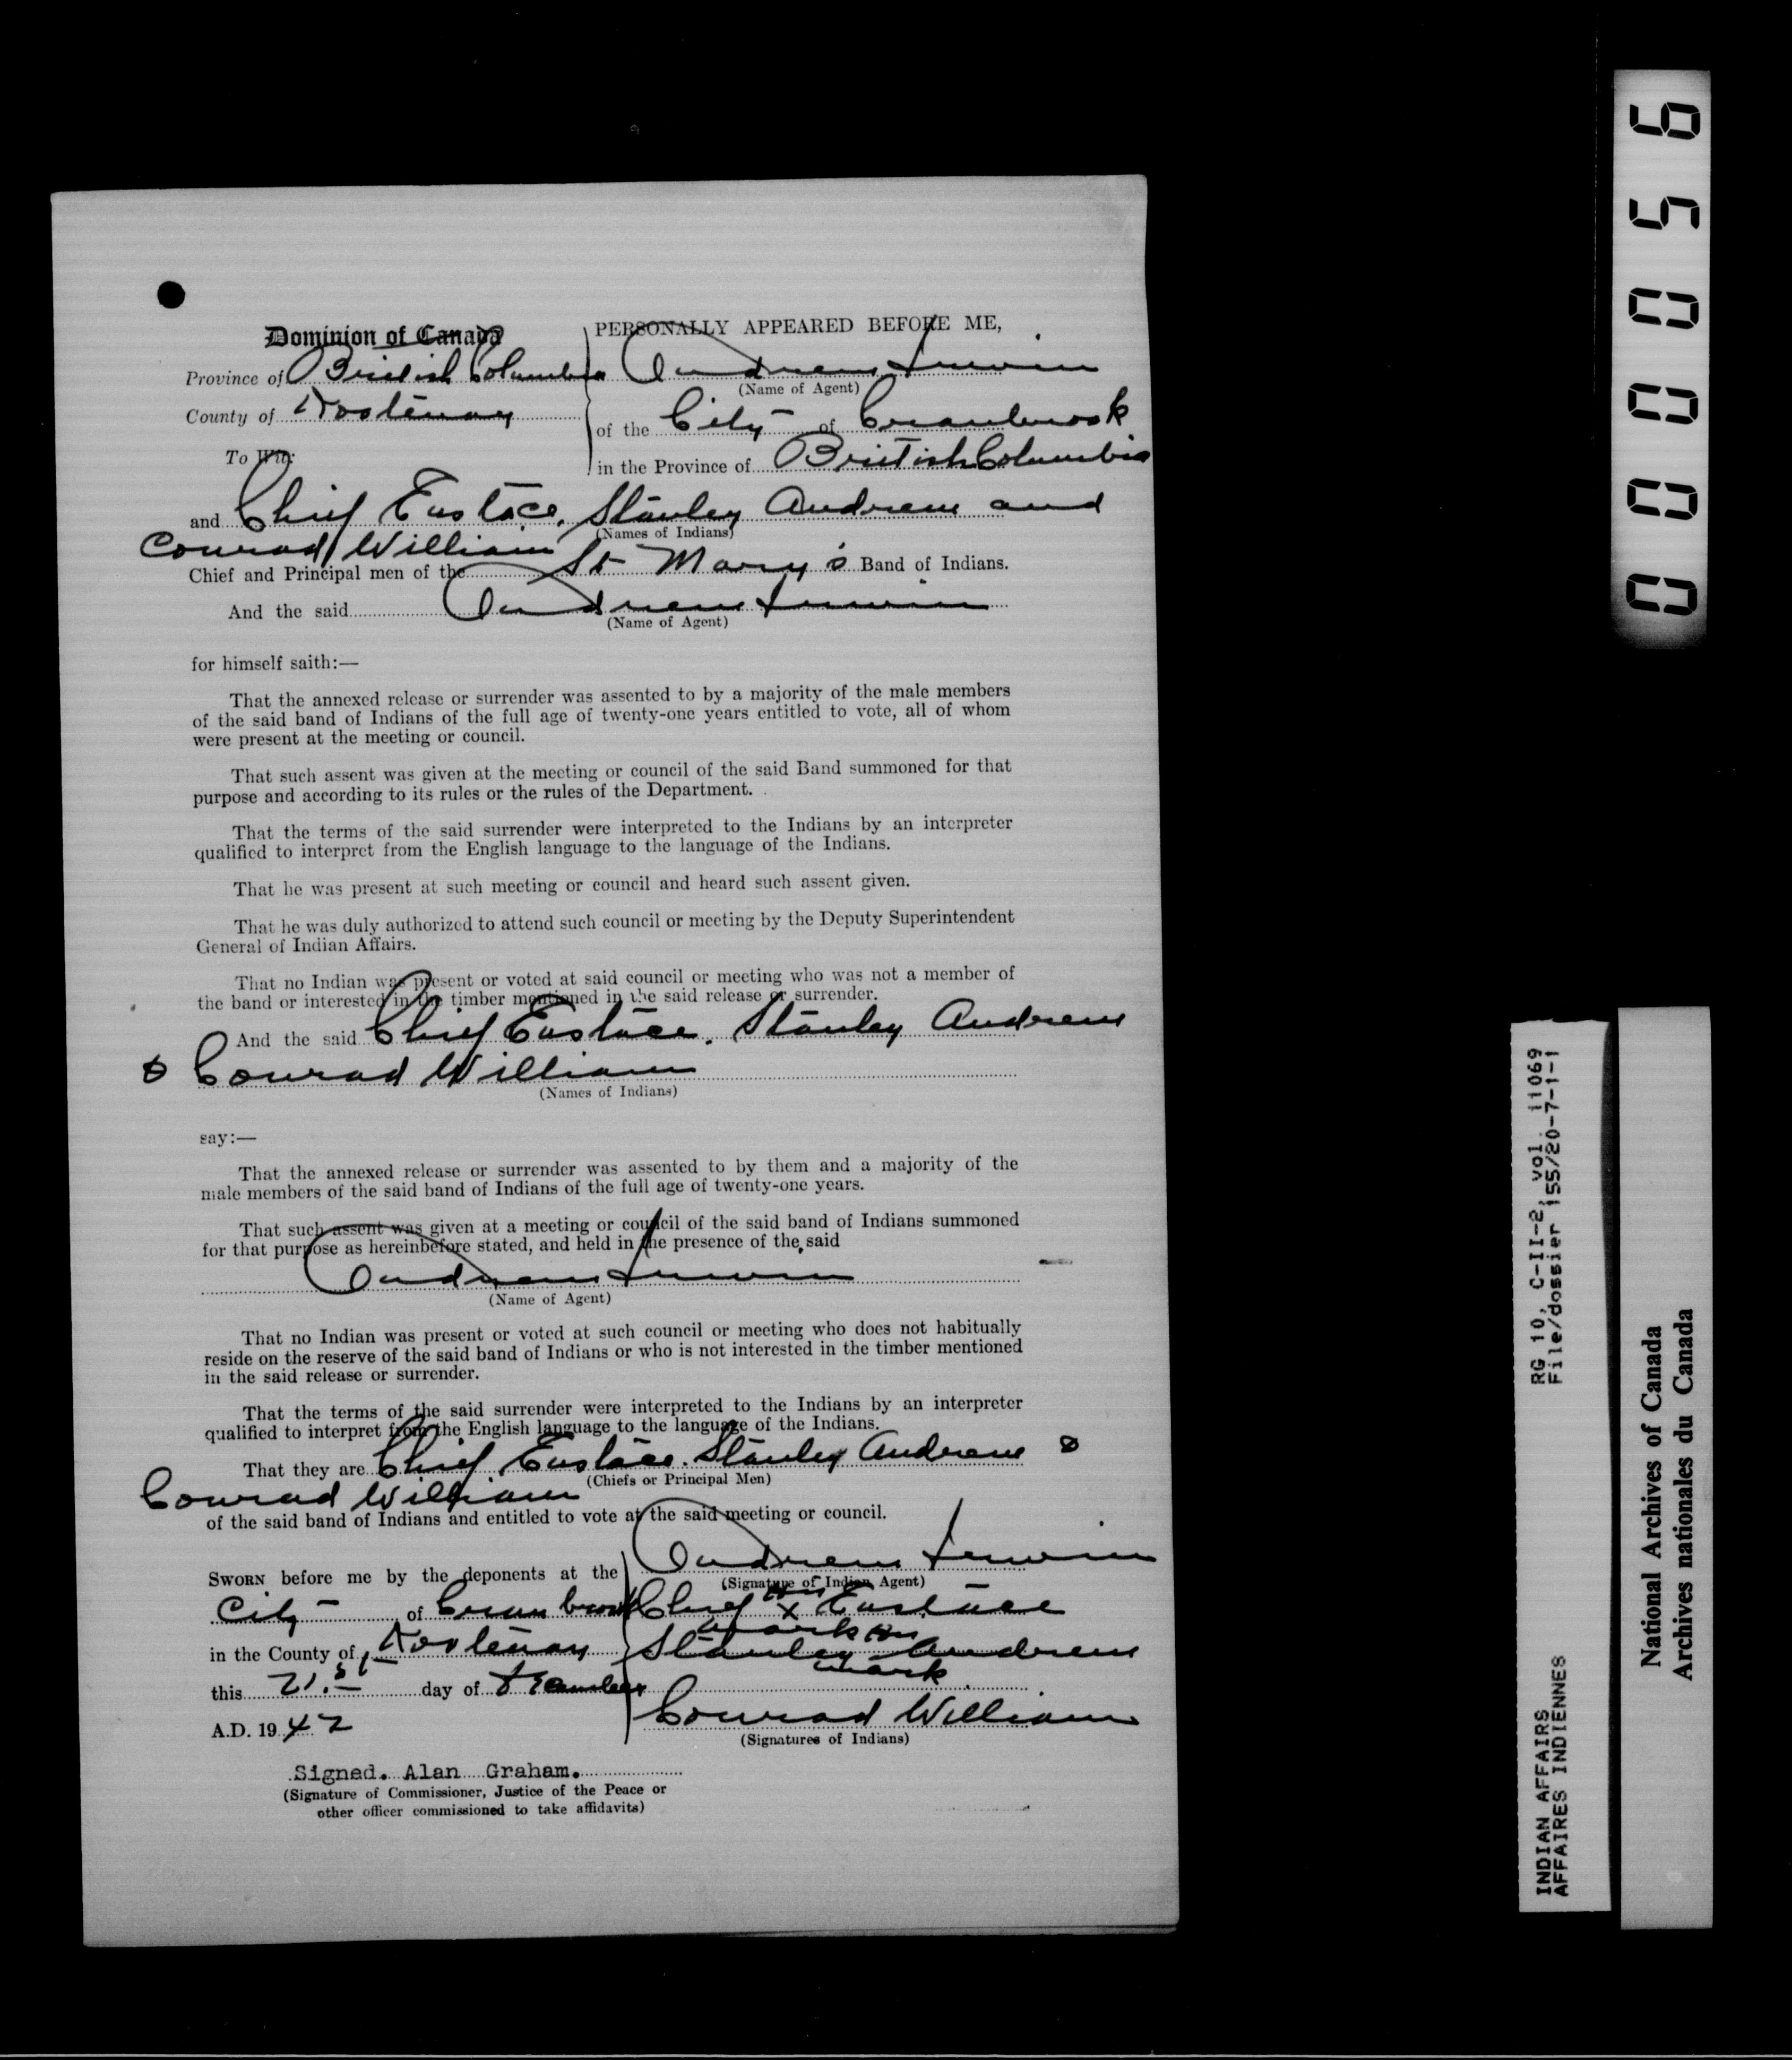 Dominion of Canada
Province of British Columbia
County of Kootenay
To Wit:
PERSONALLY APPEARED BEFORE ME,
Andrew Irwin
(Name of Agent)
of the City of Cranbrook
in the Province of British Columbia
and Chief Eustace, Stanley Andrew and
(Names of Indians)
Conrad William
Chief and Principal men of the St Mary's Band of Indians.
And the said Andrew Irwin
(Name of Agent)
for himself saith:—
That the annexed release or surrender was assented to by a majority of the male members
of the said band of Indians of the full age of twenty-one years entitled to vote, all of whom
were present at the meeting or council.
That such assent was given at the meeting or council of the said Band summoned for that
purpose and according to its rules or the rules of the Department.
That the terms of the said surrender were interpreted to the Indians by an interpreter
qualified to interpret from the English language to the language of the Indians.
That he was present at such meeting or council and heard such assent given.
That he was duly authorized to attend such council or meeting by the Deputy Superintendent
General of Indian Affairs.
That no Indian was present or voted at said council or meeting who was not a member of
the band or interested in the timber mentioned in the said release or surrender.
And the said Chief Eustace. Stanley Andrew
& Conrad William
(Names of Indians)
say:—
That the annexed release or surrender was assented to by them and a majority of the
male members of the said band of Indians of the full age of twenty-one years.
That such assent was given at a meeting or council of the said band of Indians summoned
for that purpose as hereinbefore stated, and held in the presence of the said
Andrew Irwin
(Name of Agent)
That no Indian was present or voted at such council or meeting who does not habitually
reside on the reserve of the said band of Indians or who is not interested in the timber mentioned
in the said release or surrender.
That the terms of the said surrender were interpreted to the Indians by an interpreter
qualified to interpret from the English language to the language of the Indians.
That they are Chief Eustace. Stanley Andrew &
(Chiefs or Principal Men)
Conrad William
of the said band of Indians and entitled to vote at the said meeting or council.
SWORN before me by the deponents at the
City of Cranbrook
in the County of Kootenay
this 21.st day of
A.D. 1942
Andrew Irwin
(Signature of Indian Agent)
his
Chief x Eustace
mark his
Stanley Andrew
mark
Conrad William
(Signatures of Indians)
Signed. Alan Graham.
(Signature of Commissioner, Justice of the Peace or
other officer commissioned to take affidavits)
000056
INDIAN AFFAIRS RG 10, C-II-2, vol. 11069
AFFAIRES INDIENNES File/dossier 155/20-7-1-1
National Archives of Canada
Archives nationales du Canada